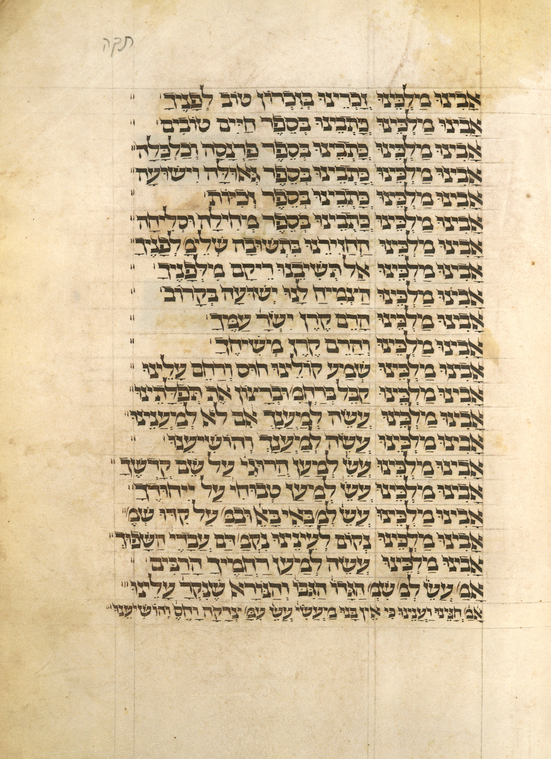 תקה
אבינו מלכינו זכרינו בזכרון טוב לפניך
אבינו מלכינו כתבינו בספר חיים טובים
אבינו מלכינו כתבינו בספר פרנסה וכלכלה
אבינו מלכינו כתבינו בספר גאולה וישועה
אבינו מלכינו כתבינו בספר זכיות
אבינו מלכינו כתבינו בספר מחילה וסליחה
אבינו מלכינו החזירנו בתשובה שלימ לפניך
אבינו מלכינו אל תשיבנו ריקם מילפניך
אבינו מלכינו הצמיח לנו ישועה בקרוב
אבינו מלכינו הרם קרן ישר עמך
אבינו מלכינו והרים קרן משיחך
אבינו מלכינו שמע קולינו חוס ורחם עלינו
אבינו מלכינו קבל ברחמ וברצון את תפלתינו
אבינו מלכינו עשה למענך אם לא למעננו
אבינו מלכינו עשה למענך והושיענו
אבינו מלכינו עש למען הרוגי על שם קדשך
אבינו מלכינו עש למען טבוחי על ייחודך
אבינו מלכינו עש למ באי בא ובמ על קדו שמ
אבינו מלכינו נקום לעינינו נקמ דם עבדי השפוך
אבינו מלכינו עשה למען רחמיך הרבים
אמ עש למ שמ הגדו הגבו והנורא שנקר עלינו
אמ חנינו ועננו כי אין בנו מעשי עש עמ צדקה וחס והושיענו